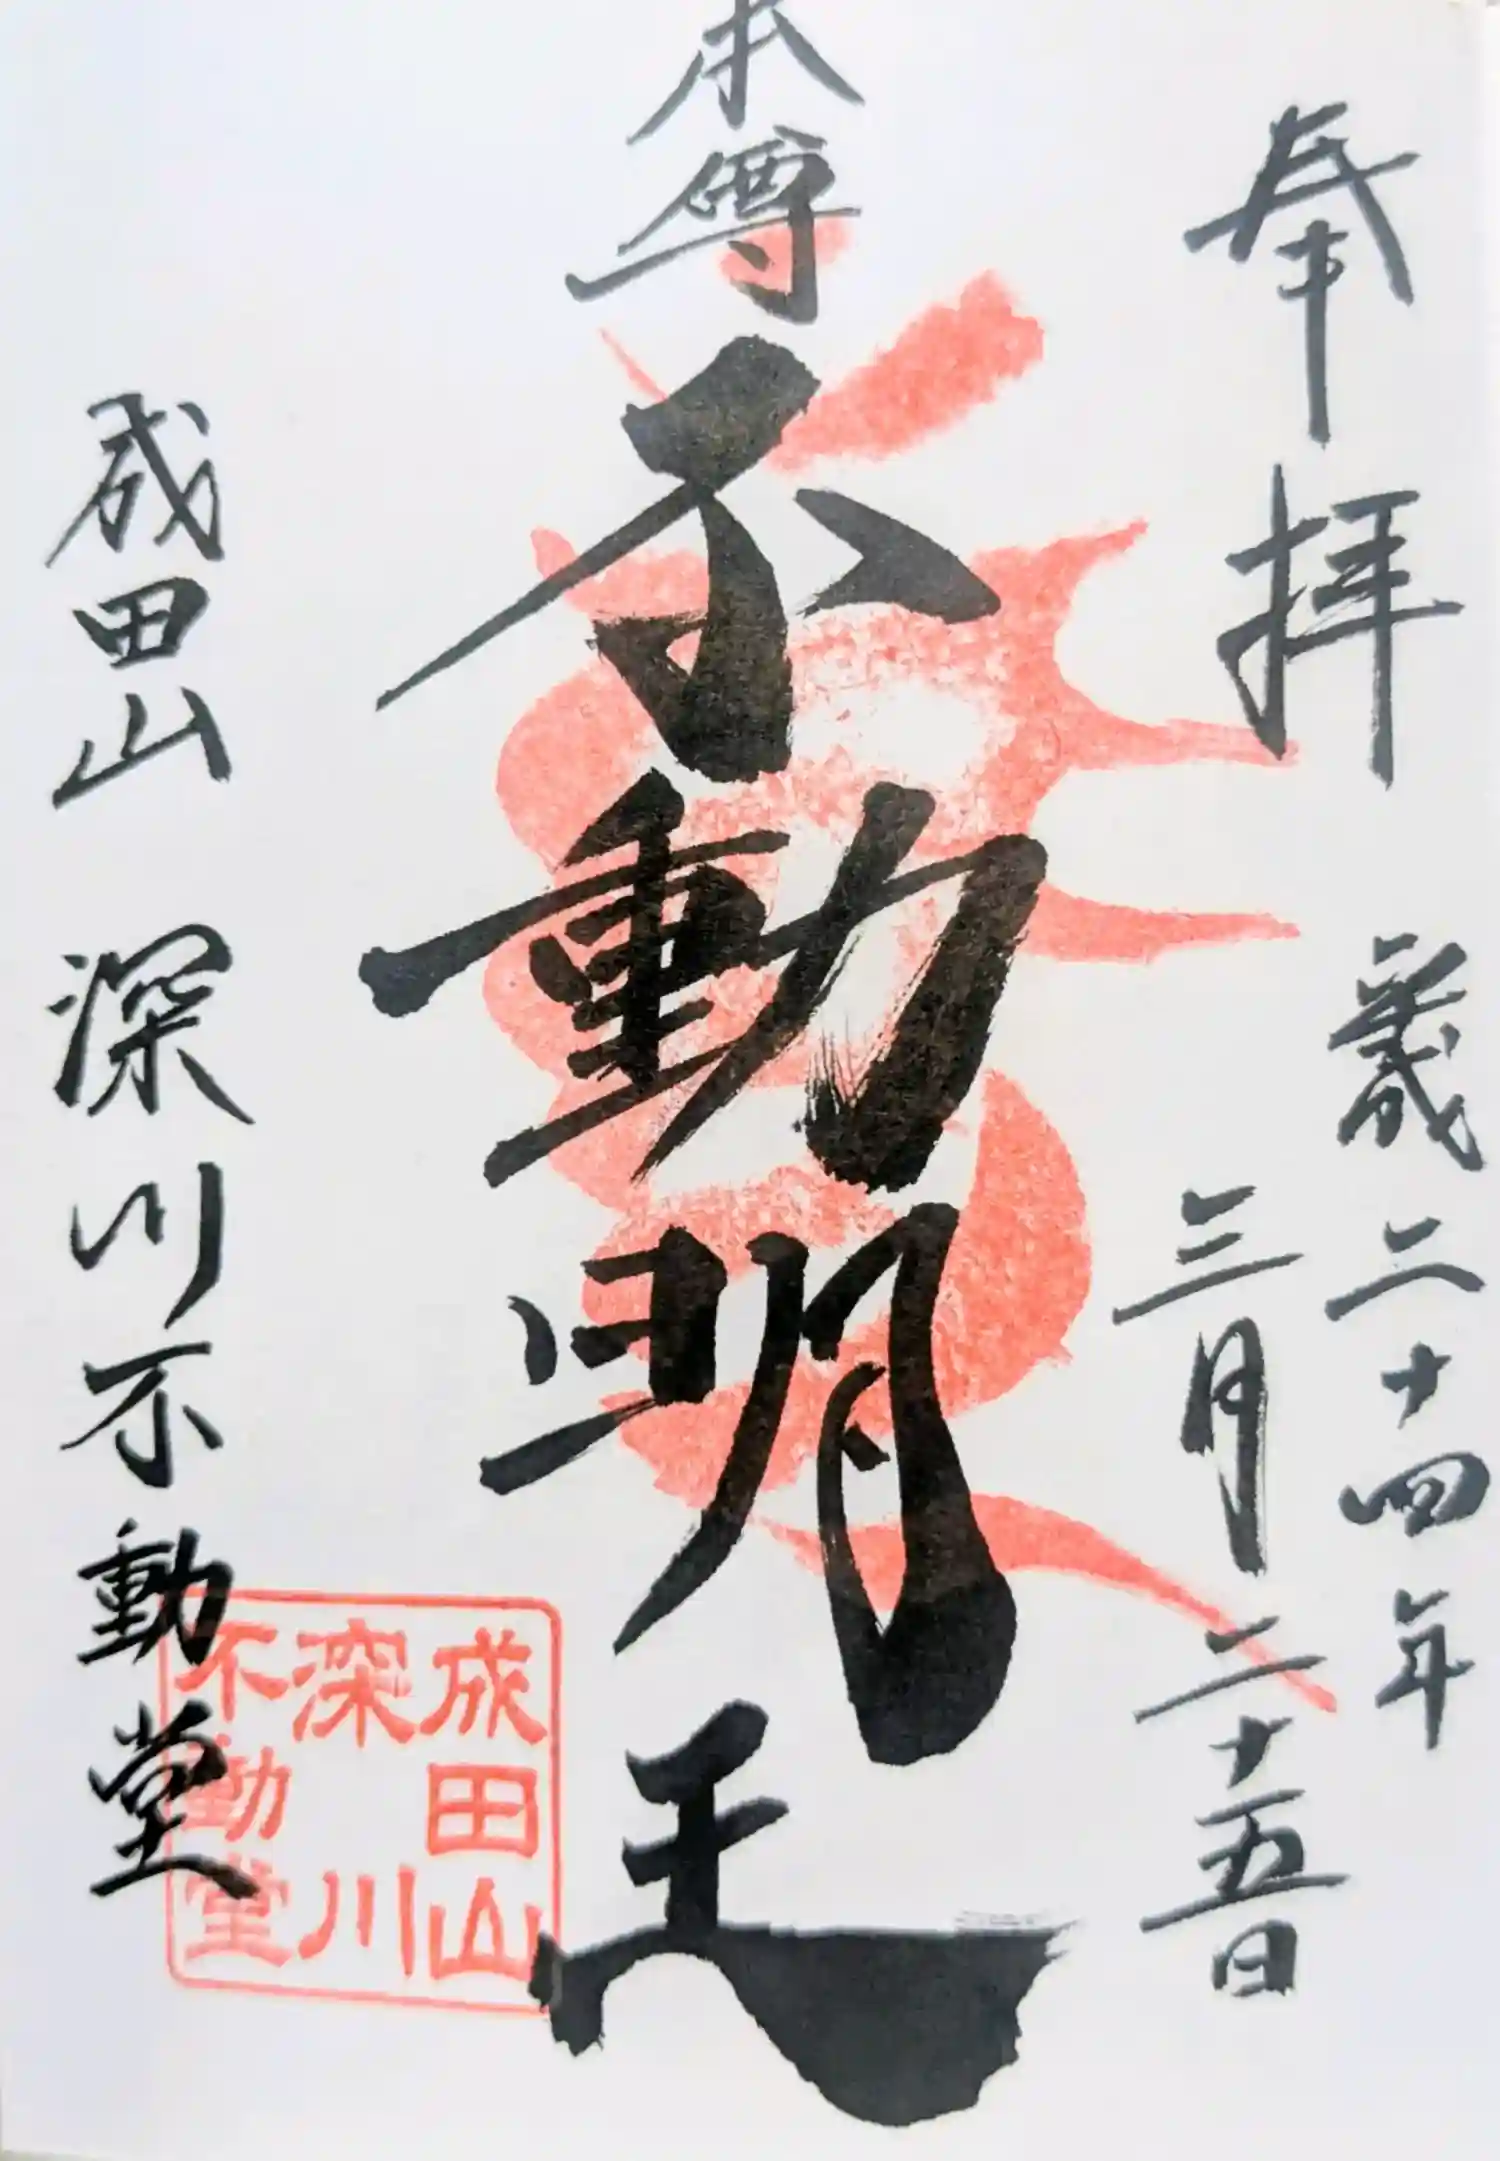 奉拝
歳二十四年
三月二十五日
本尊
不動明王
成田山 深川不動堂
成田山
深川
不動堂